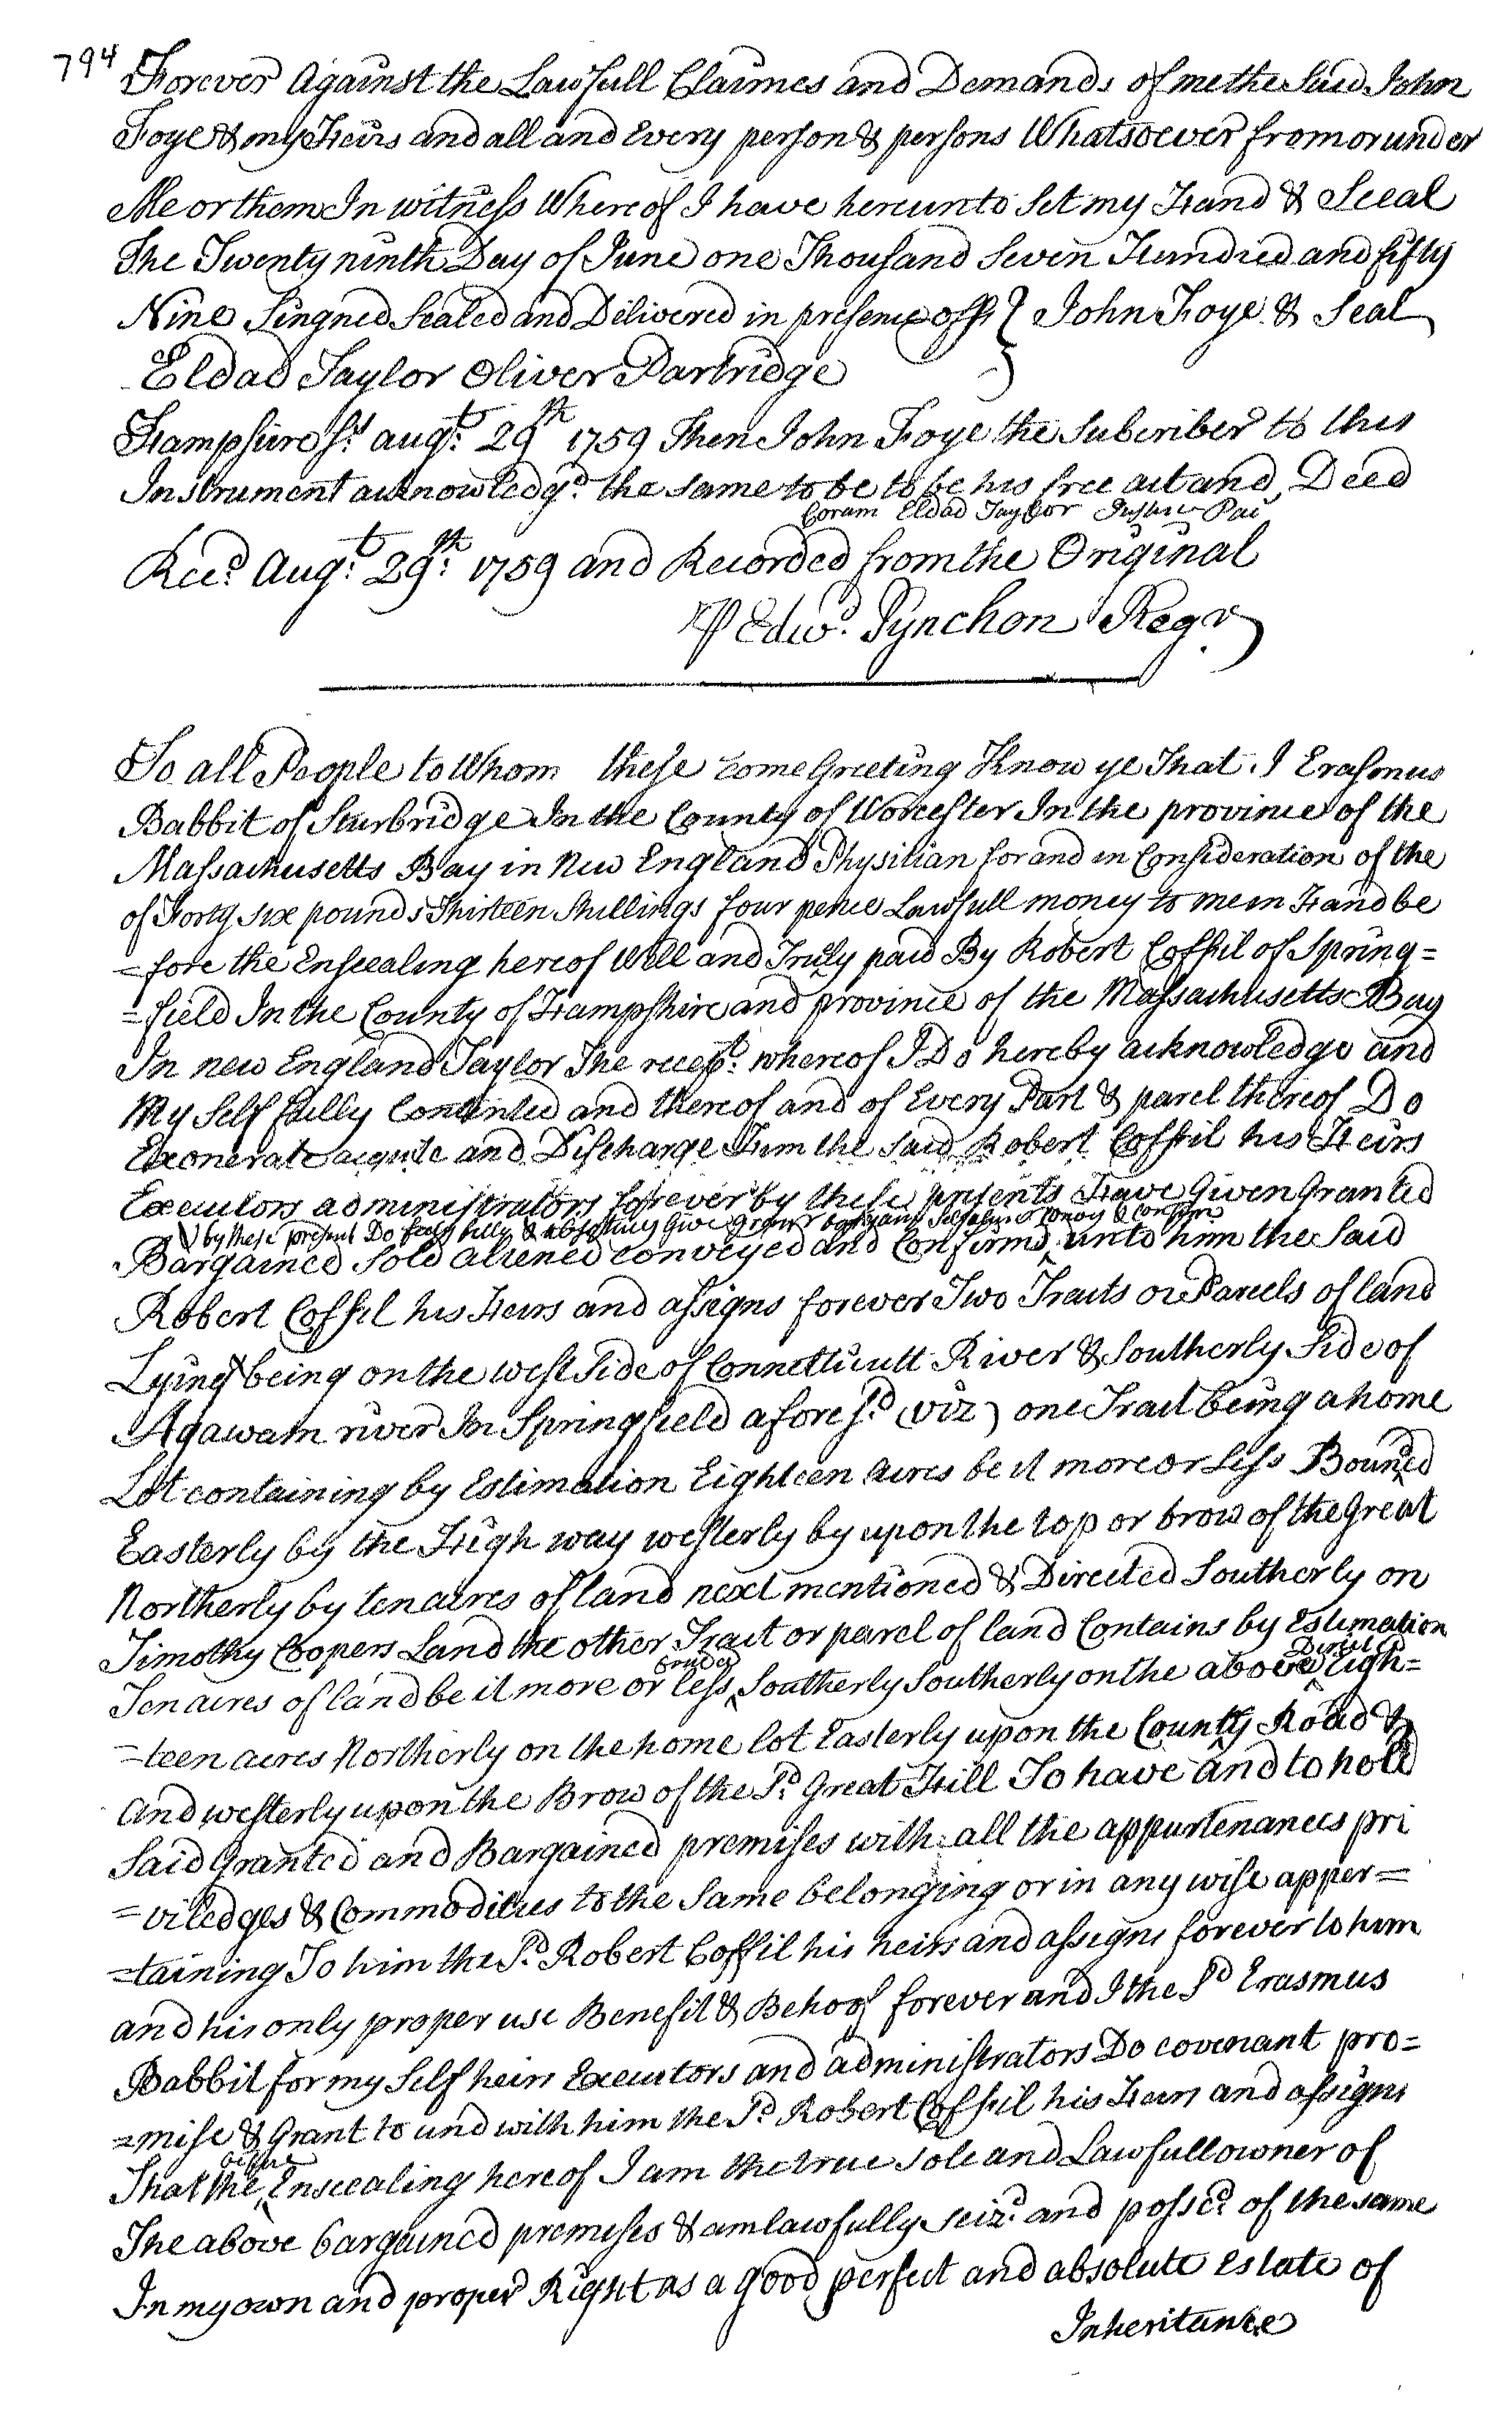 794
Forever Against the Lawfull Claimes and Demands of me the Said John
Foye & my Heirs and all and Every person & persons Whatsoever from or under
Me or them In witness Whereof I have hereunto Set my Hand & Seeal
The Twenty ninth Day of June one Thousand Seven Hundred and fifty
Nine Singned Sealed and Delivered in presence off } John Foye & Seal
Eldad Taylor Oliver Partridge
Hampshire Ss augt: 29th 1759 Then John Foye the Subcriber to this
Instrument acknowledgd: the same to be to be his free act and Deed
Coram Eldad Taylor Justice Pac
Recd Augt: 29th: 1759 and Recorded from the Original
P Edwd. Pynchon Regr
To all People to Whom these come Greeting Know ye That I Erasmus
Babbit of Sturbridge In the County of Worcester In the province of the
Massachusetts Bay in New England Physitian for and in Consideration of the
of Forty Six pounds Thirteen Shillings four pence Lawfull money to me in Hand be
=fore the Enseealing hereof Well and Truly paid By Robert Coffil of Spring=
=field In the County of Hampshire and province of the Massachusetts Bay
In new England Taylor The recept: whereof I Do hereby acknowledge and
My Self fully Contented and thereof and of Every Part & parcel thereof Do
Exonerate acquite and Discharge Him the Said Robert Coffil his Heirs
Executors administrators forever by these presents Have Given Granted
by these present Do freely fully & absolutely Give grant bargain Sell aliene convey & confirm
Bargained Sold aliened conveyed and Confirmd unto him the Said
Robert Coffil his Heirs and assigns forever Two Tracts or Parcels of land
Lying & being on the west Side of Connetticutt River & Southerly Side of
Agawam river In Springfield afores.d (viz) one Tract being a home
Lot containing by Estimation Eighteen acres be it more or Less Bouned
Easterly by the High way westerly by upon the top or brow of the Great
Northerly by ten acres of land next mentioned & Directed Southerly on
Timothy Coopers Land the other Tract or parcel of land Contains by Estimation
Ten acres of land be it more or less Southerly Southerly on the above Directed Eigh=
=teen acres Northerly on the home lot Easterly upon the County Road &
and westerly upon the Brow of the Sd. Great Hill To have and to hold
Said Granted and Bargained premises with all the appurtenances pri
=viledges & Commodities to the Same belonging or in any wise apper=
=taining To him the Sd. Robert Coffil his heirs and assigns forever to him
and his only proper use Benefit & Behoof forever and I the Sd Erasmus
Babbit for my Self heirs Executors and administrators Do covenant pro=
=mise & Grant to and with him the Sd Robert Coffil his Heirs and assigns
before
That the Enseealing hereof I am the true sole and Lawfull owner of
The above bargained premises & am lawfully seizd. and possed. of the same
In my own and proper Right as a good perfect and absolute estate of
Inheritance